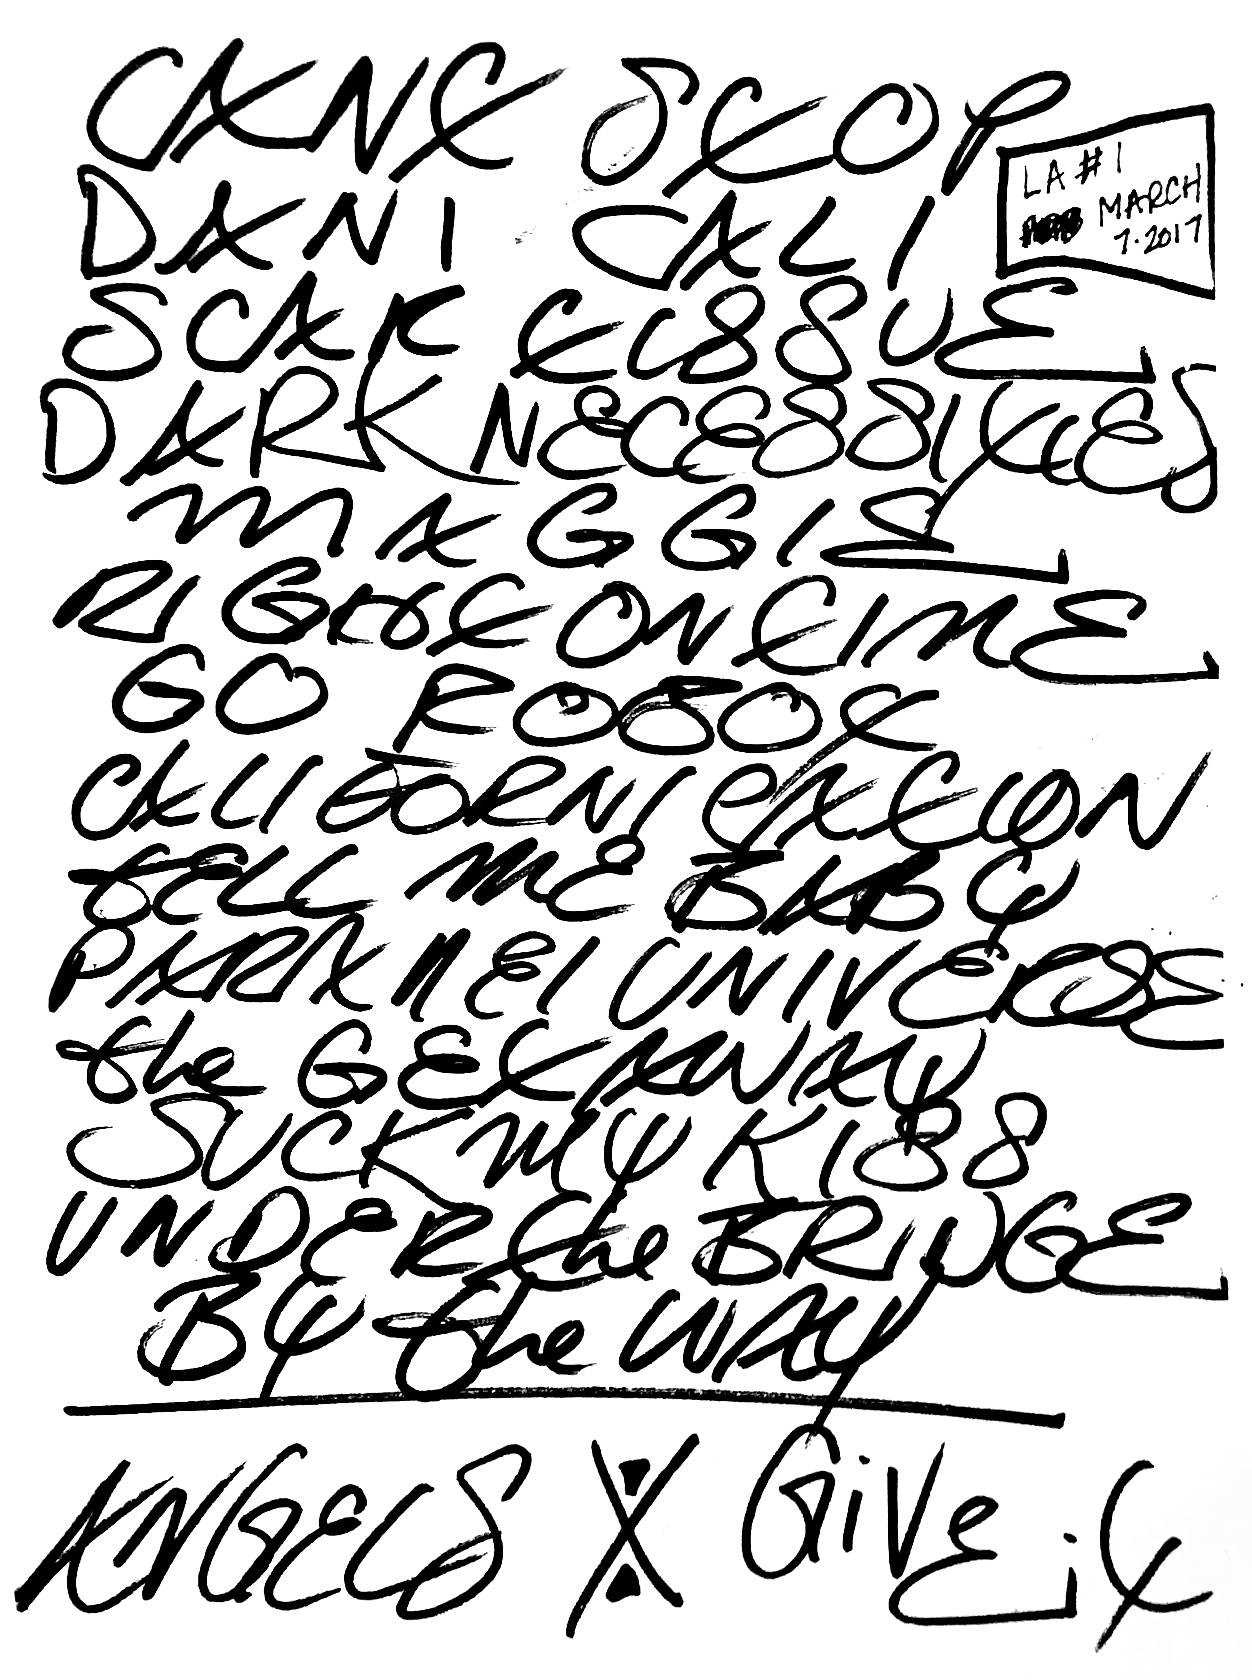 CANT STOP
LA #1
MARCH
7.2017
DANI CALI
SCAR TISSUE
DARK NECESSITIES
MAGGIE
RIGHT ON TIME
GO ROBOT
CALIFORNICATION
tELL ME BABY
PARALLEL UNIVERSE
the GETAWAY
SUCK MY KISS
UNDER the BRIDGE
BY the WAY
ANGELS
GiVE it